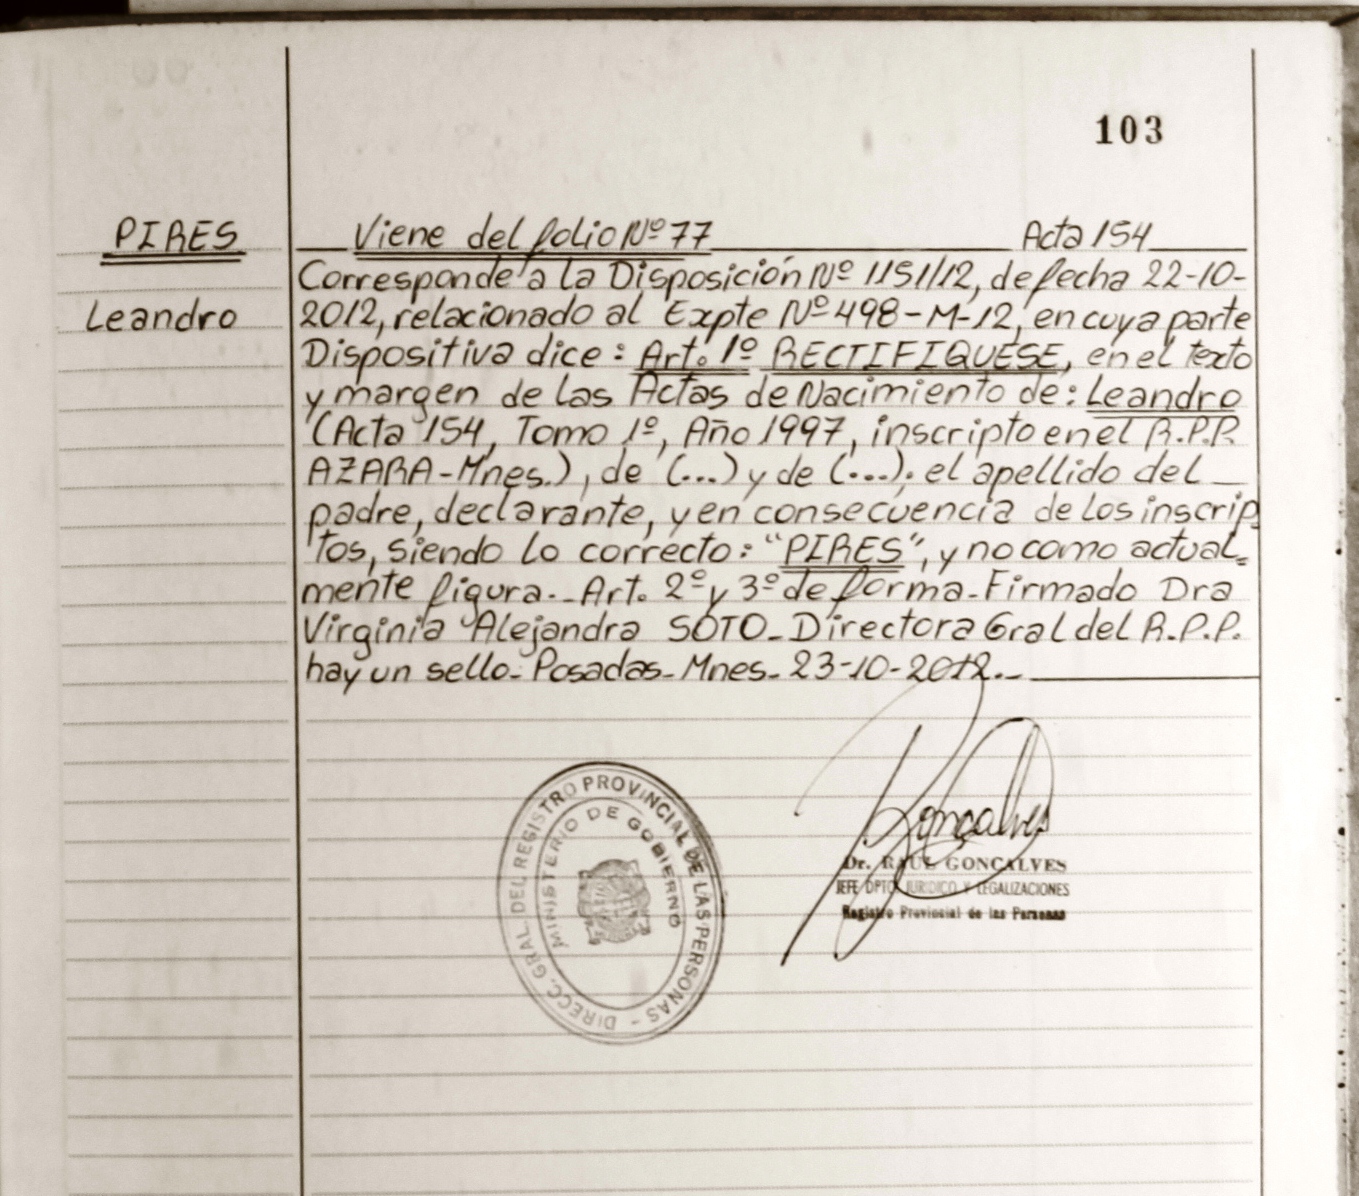 103
PIRES
Viene del folio Nº 77 Acta 154
Leandro
Corresponde a la Disposición Nº 1151/12, de fecha 22-10-
2012, relacionado al Expte Nº 498-M-12, en cuya parte
Dispositiva dice: Art. 1º RECTIFIQUESE, en el texto
y margen de las Actas de Nacimiento de: Leandro
(Acta 154, Tomo 1º, Año 1997, inscripto en el R.P.P.
AZARA-Mnes.), de (...) y de (...); el apellido del
padre, declarante, y en consecuencia de los inscrip
tos, siendo lo correcto: "PIRES", y no como actual=
mente figura.- Art. 2º y 3º de forma- Firmado Dra
Virginia Alejandra SOTO- Directora Gral del R.P.P.
hay un sello- Posadas- Mnes- 23-10-2012.-
DIRECC. GRAL. DEL REGISTRO PROVINCIAL DE LAS PERSONAS -
MINISTERIO DE GOBIERNO
Gonçalves
Dr. RAUL GONCALVES
JEFE DPTO JURIDICO Y LEGALIZACIONES
Registro Provincial de las Personas